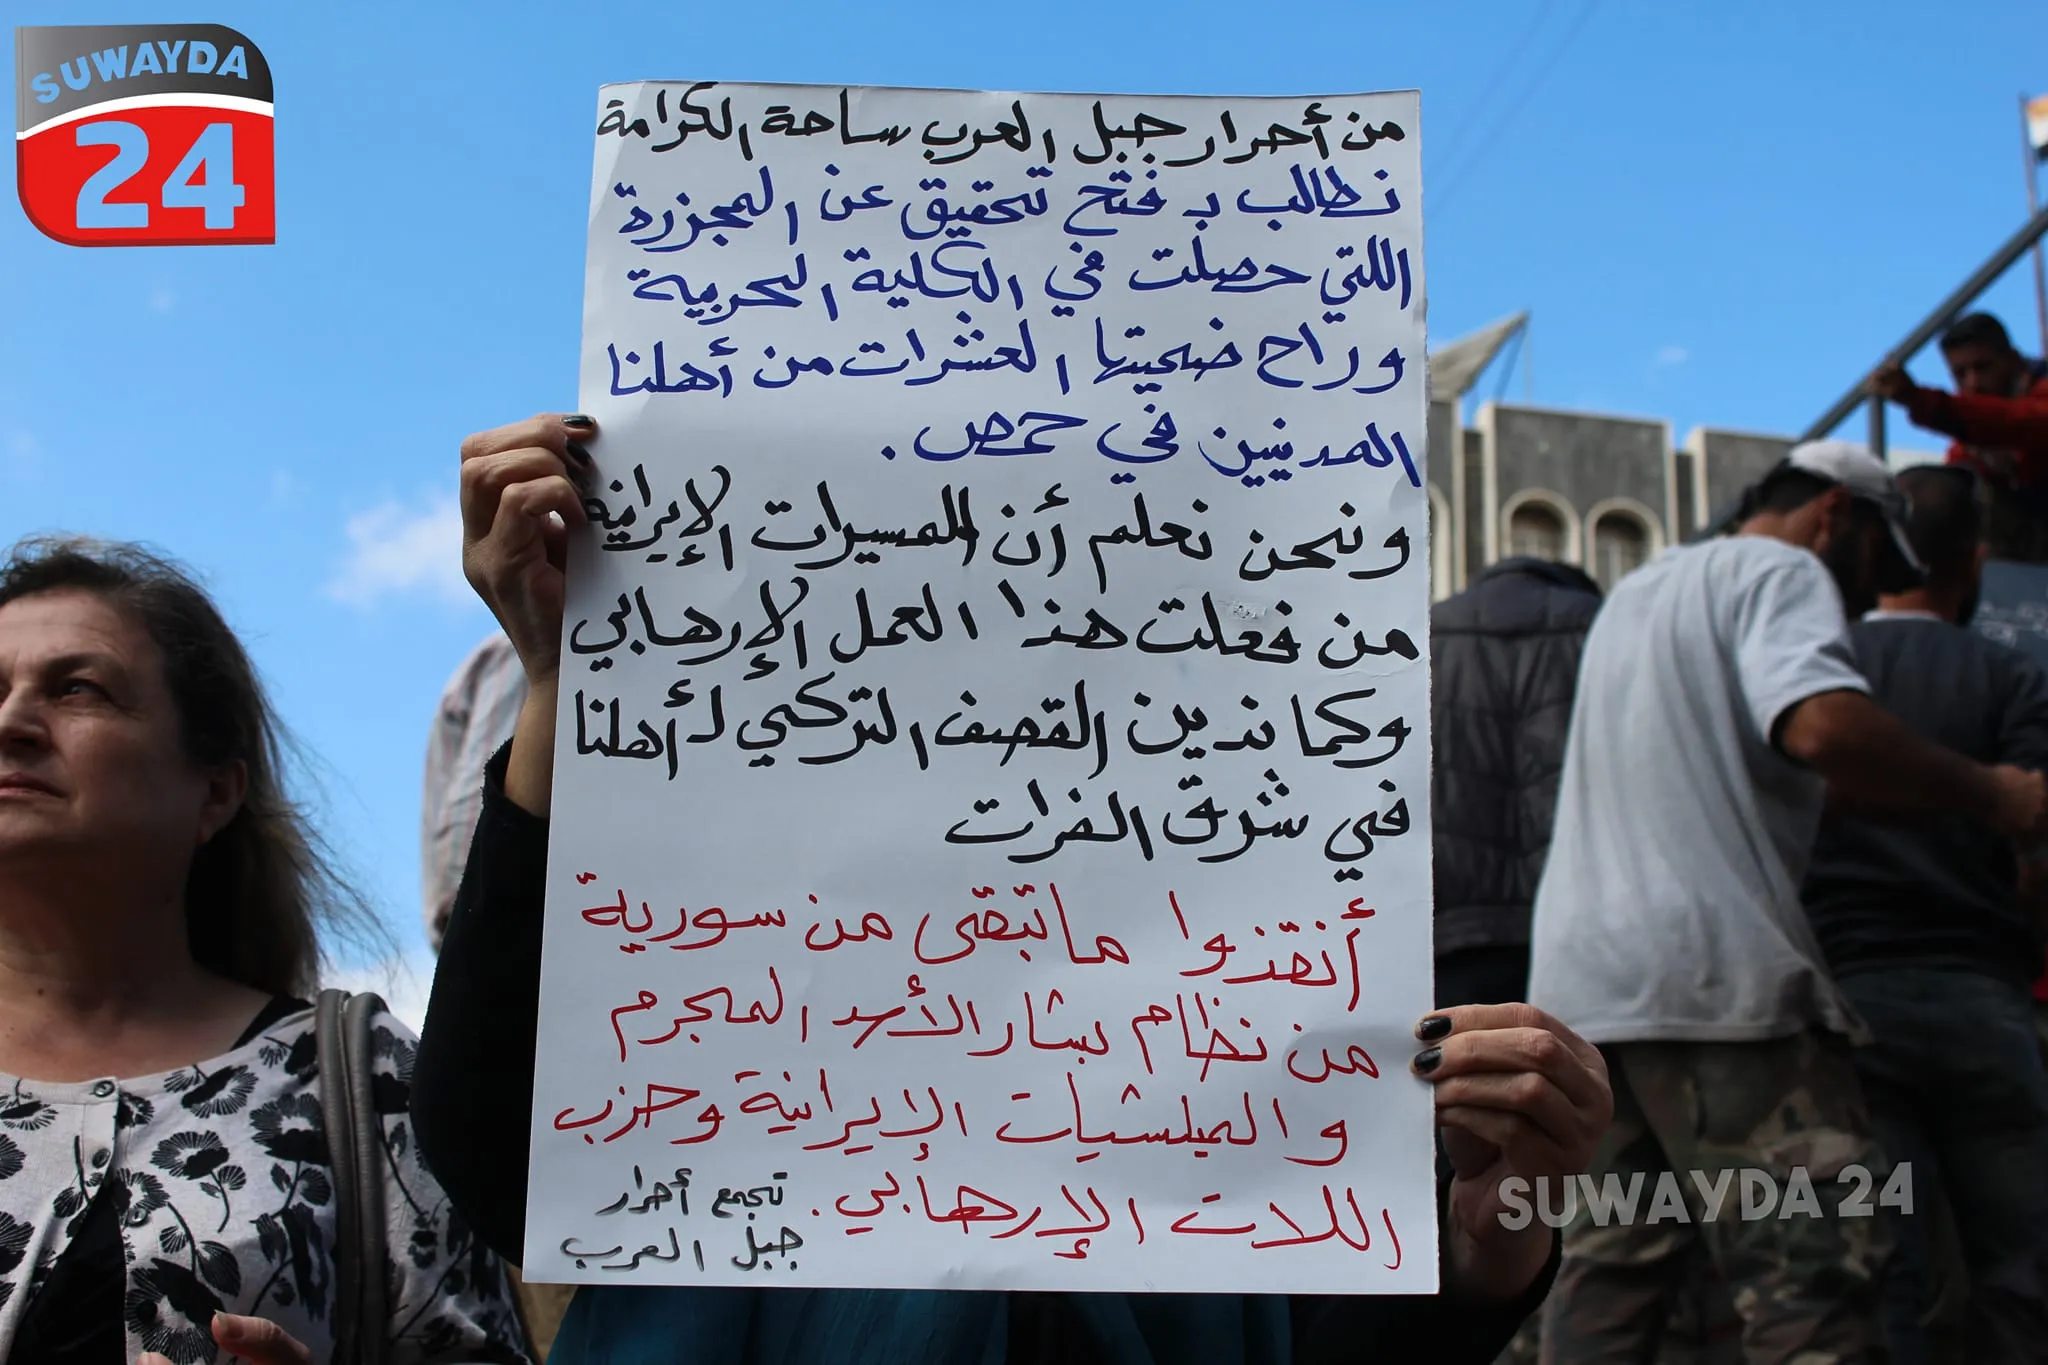 SUWAYDA
24
من أحرار جبل العرب ساحة الكرامة
نطالب بـ فتح تحقيق عن المجزرة
اللتي حصلت في الكلية الحربية
وراح ضحيتها العشرات من أهلنا
المدنيين في حمص.
ونحن نعلم أن المسيرات الإيرانية
من فعلت هذا العمل الإرهابي
وكما ندين القصف التركي لـ أهلنا
في شرق الفرات
أنقذوا ما تبقى من سورية
من نظام بشار الأسد المجرم
والميلشيات الإيرانية وحزب
اللات الإرهابي.
تجمع أحرار
جبل العرب
SUWAYDA 24